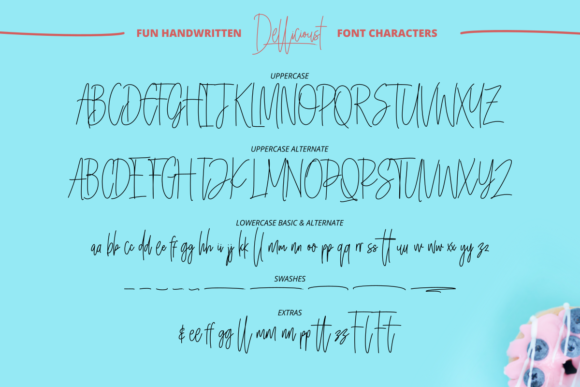 FUN HANDWRITTEN Dellicioust FONT CHARACTERS
UPPERCASE
ABCDEFGHIJKLMNOPQRSTUVWXYZ
UPPERCASE ALTERNATE
ABCDEFGHIJKLMNOPQRSTUVWXYZ
LOWERCASE BASIC & ALTERNATE
aa bb cc dd ee ff gg hh ii jj kk ll mm nn oo pp qq rr ss tt uu vv ww xx yy zz
SWASHES
EXTRAS
& ee ff gg ll mm nn pp tt zz